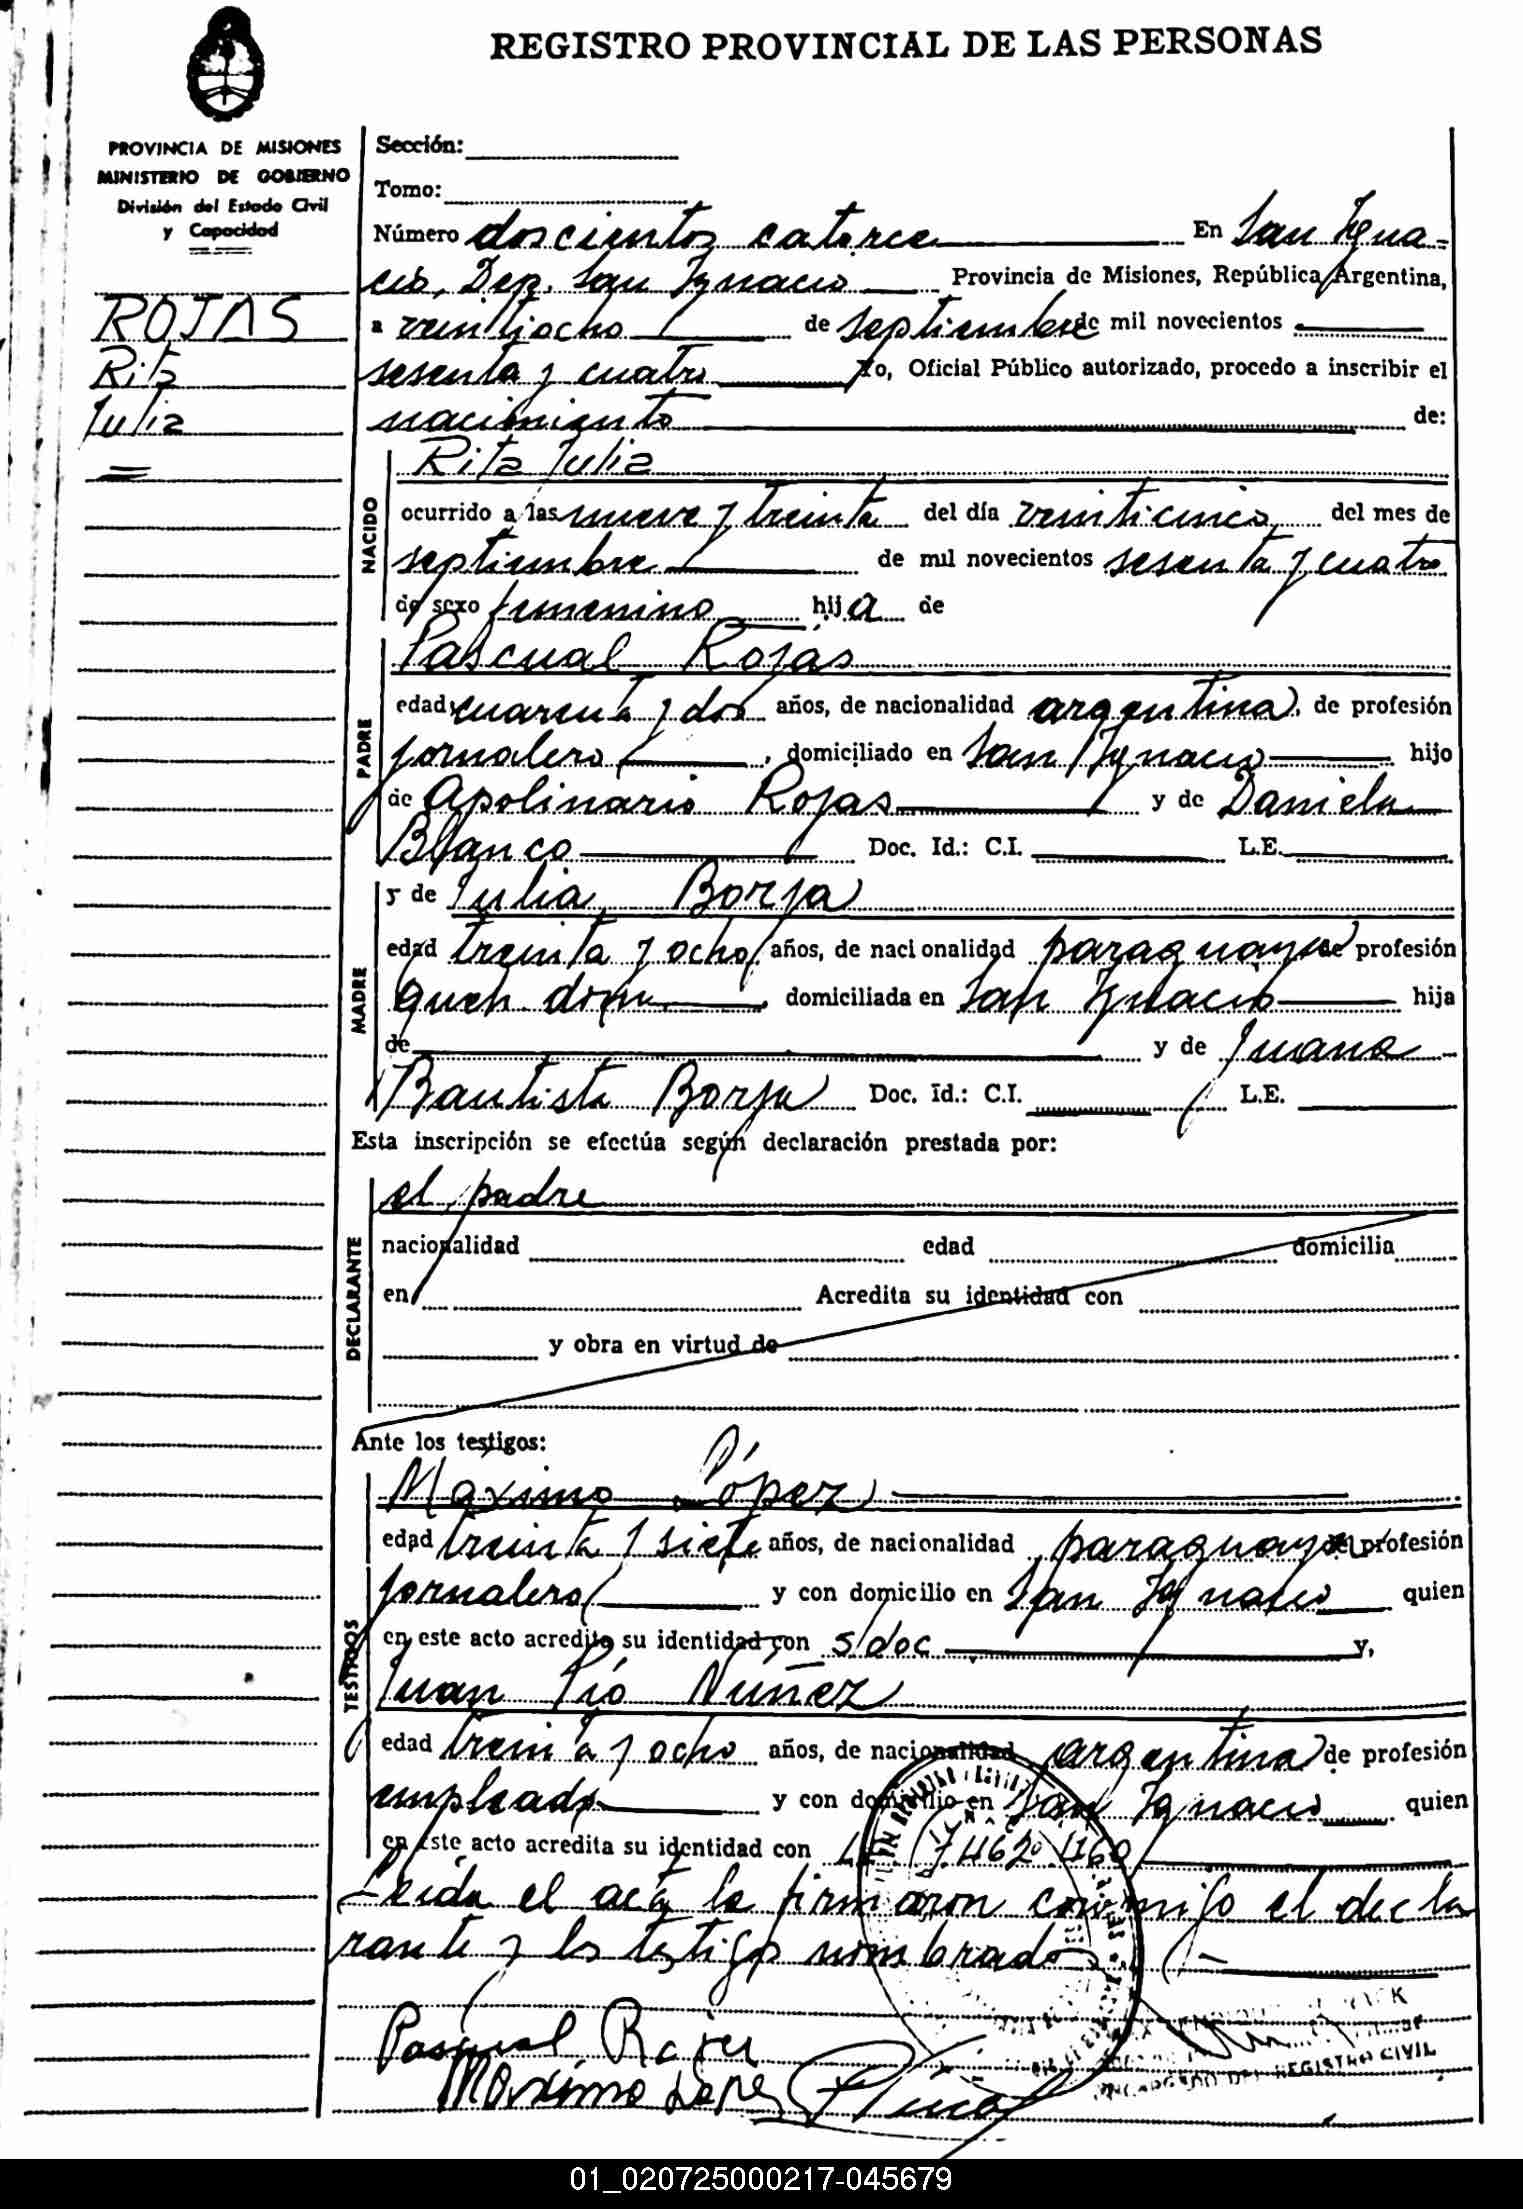 REGISTRO PROVINCIAL DE LAS PERSONAS
PROVINCIA DE MISIONES
MINISTERIO DE GOBIERNO
División del Estado Civil
y Capacidad
ROJAS
Rita
Julia
Sección:
Tomo:
Número doscientos catorce En San Igna-
cio, Dep. San Ignacio Provincia de Misiones, República Argentina,
a veintiocho de septiembre de mil novecientos
sesenta y cuatro Yo, Oficial Público autorizado, procedo a inscribir el
nacimiento de:
NACIDO
Rita Julia
ocurrido a las nueve y treinta del día veinticinco del mes de
septiembre de mil novecientos sesenta y cuatro
de sexo femenino hija de
PADRE
Pascual Rojas
edad cuarenta y dos años, de nacionalidad argentina, de profesión
jornalero, domiciliado en San Ignacio hijo
de Apolinario Rojas y de Daniela
Blanco Doc. Id.: C.I. L.E.
MADRE
y de Julia Borja
edad treinta y ocho años, de nacionalidad paraguaya de profesión
queh. dom. domiciliada en San Ignacio hija
de y de Juana
Bautista Borja Doc. Id.: C.I. L.E.
Esta inscripción se efectúa según declaración prestada por:
DECLARANTE
el padre
nacionalidad edad domicilia
en Acredita su identidad con
y obra en virtud de
Ante los testigos:
TESTIGOS
Máximo López
edad treinta y siete años, de nacionalidad paraguaya de profesión
jornalero y con domicilio en San Ignacio quien
en este acto acredita su identidad con s/doc y,
Juan Pío Núñez
edad treinta y ocho años, de nacionalidad argentina de profesión
empleado y con domicilio en San Ignacio quien
en este acto acredita su identidad con
Leída el acta la firmaron conmigo el decla
rante y los testigos nombrados
Pascual Rojas
Maximo Lopez
ENCARGADO DEL REGISTRO CIVIL
01_020725000217-045679